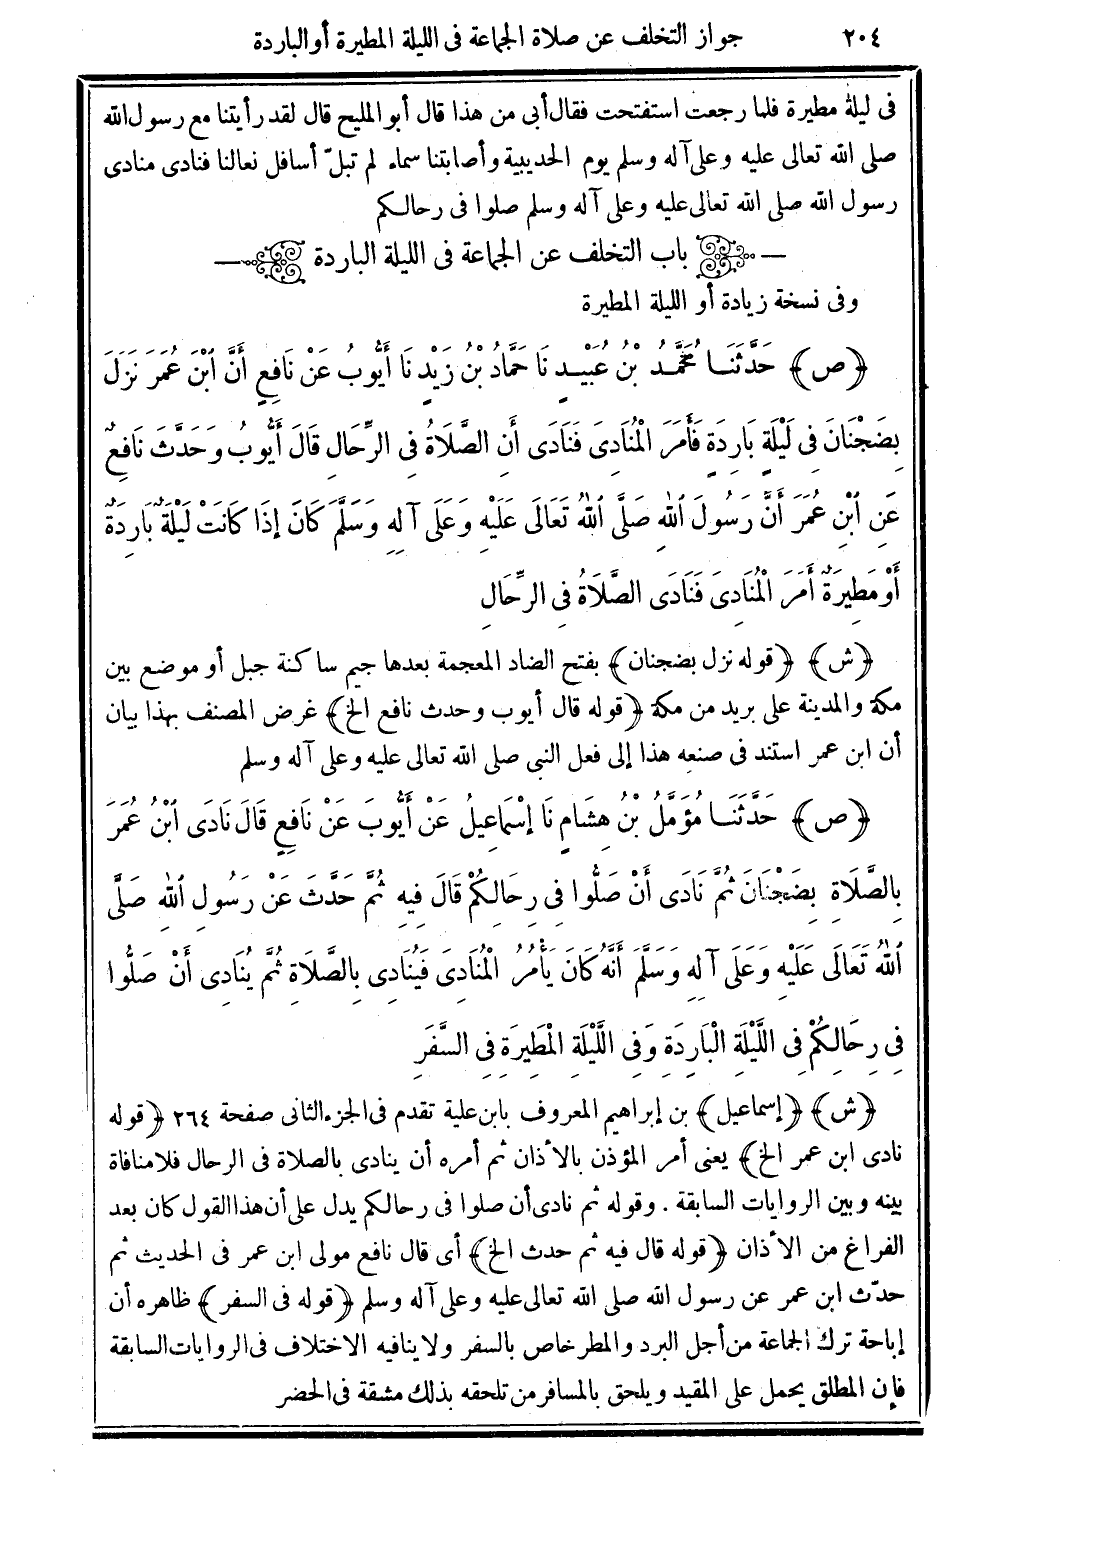 ٢٠٤ جواز التخلف عن صلاة الجماعة فى الليلة المطيرة أو الباردة
فى ليلة مطيرة فلما رجعت استفتحت فقال أبى من هذا قال أبو المليح قال لقد رأيتنا مع رسول الله
صلى الله تعالى عليه وعلى آله وسلم يوم الحديبية وأصابتنا سماء لم تبلّ أسافل نعالنا فنادى منادى
رسول الله صلى الله تعالى عليه وعلى آله وسلم صلوا فى رحالكم
— باب التخلف عن الجماعة فى الليلة الباردة —
وفى نسخة زيادة أو الليلة المطيرة
﴿ص﴾ حَدَّثَنَا مُحَمَّدُ بْنُ عُبَيْدٍ نَا حَمَّادُ بْنُ زَيْدٍ نَا أَيُّوبُ عَنْ نَافِعٍ أَنَّ ابْنَ عُمَرَ نَزَلَ
بِضَجْنَانَ فِى لَيْلَةٍ بَارِدَةٍ فَأَمَرَ الْمُنَادِىَ فَنَادَى أَنِ الصَّلَاةُ فِى الرِّحَالِ قَالَ أَيُّوبُ وَحَدَّثَ نَافِعٌ
عَنِ ابْنِ عُمَرَ أَنَّ رَسُولَ اللهِ صَلَّى اللهُ تَعَالَى عَلَيْهِ وَعَلَى آلِهِ وَسَلَّمَ كَانَ إِذَا كَانَتْ لَيْلَةٌ بَارِدَةٌ
أَوْ مَطِيرَةٌ أَمَرَ الْمُنَادِىَ فَنَادَى الصَّلَاةُ فِى الرِّحَالِ
﴿ش﴾ ﴿قوله نزل بضجنان﴾ بفتح الضاد المعجمة بعدها جيم ساكنة جبل أو موضع بين
مكة والمدينة على بريد من مكة ﴿قوله قال أيوب وحدث نافع الخ﴾ غرض المصنف بهذا بيان
أن ابن عمر استند فى صنعه هذا إلى فعل النبى صلى الله تعالى عليه وعلى آله وسلم
﴿ص﴾ حَدَّثَنَا مُؤَمَّلُ بْنُ هِشَامٍ نَا إِسْمَاعِيلُ عَنْ أَيُّوبَ عَنْ نَافِعٍ قَالَ نَادَى ابْنُ عُمَرَ
بِالصَّلَاةِ بِضَجْنَانَ ثُمَّ نَادَى أَنْ صَلُّوا فِى رِحَالِكُمْ قَالَ فِيهِ ثُمَّ حَدَّثَ عَنْ رَسُولِ اللهِ صَلَّى
اللهُ تَعَالَى عَلَيْهِ وَعَلَى آلِهِ وَسَلَّمَ أَنَّهُ كَانَ يَأْمُرُ الْمُنَادِىَ فَيُنَادِى بِالصَّلَاةِ ثُمَّ يُنَادِى أَنْ صَلُّوا
فِى رِحَالِكُمْ فِى اللَّيْلَةِ الْبَارِدَةِ وَفِى اللَّيْلَةِ الْمَطِيرَةِ فِى السَّفَرِ
﴿ش﴾ ﴿إسماعيل﴾ بن إبراهيم المعروف بابن علية تقدم فى الجزء الثانى صفحة ٢٦٤ ﴿قوله
نادى ابن عمر الخ﴾ يعنى أمر المؤذن بالأذان ثم أمره أن ينادى بالصلاة فى الرحال فلا منافاة
بينه وبين الروايات السابقة . وقوله ثم نادى أن صلوا فى رحالكم يدل على أن هذا القول كان بعد
الفراغ من الأذان ﴿قوله قال فيه ثم حدث الخ﴾ أى قال نافع مولى ابن عمر فى الحديث ثم
حدّث ابن عمر عن رسول الله صلى الله تعالى عليه وعلى آله وسلم ﴿قوله فى السفر﴾ ظاهره أن
إباحة ترك الجماعة من أجل البرد والمطر خاص بالسفر ولا ينافيه الاختلاف فى الروايات السابقة
فإن المطلق يحمل على المقيد ويلحق بالمسافر من تلحقه بذلك مشقة فى الحضر